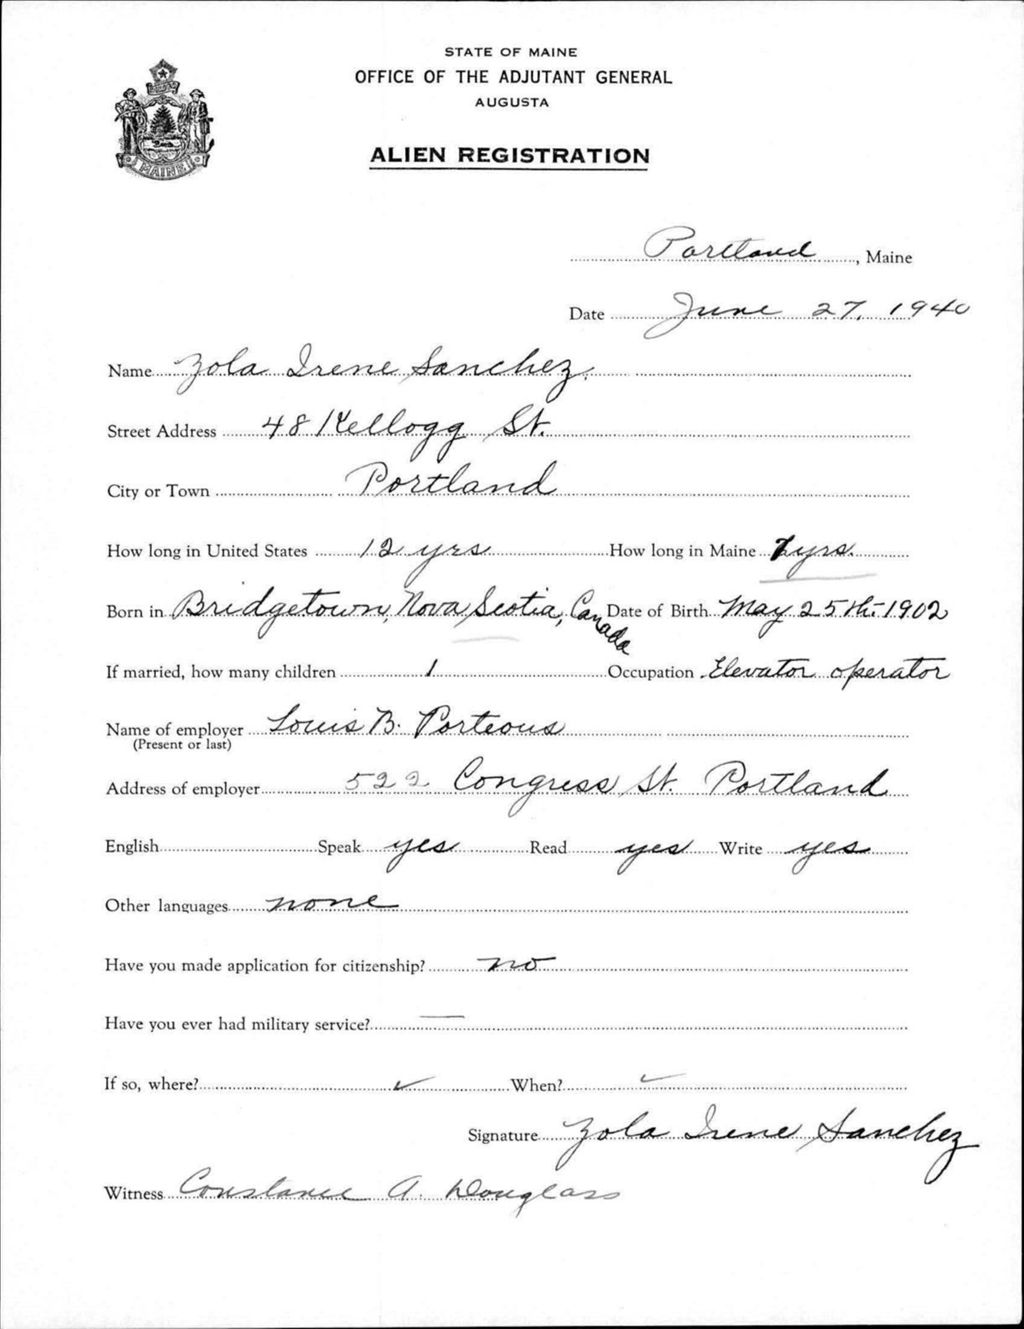 STATE OF MAINE
OFFICE OF THE ADJUTANT GENERAL
AUGUSTA
MAINE
ALIEN REGISTRATION
Portland, Maine
Date June 27, 1940
Name Zola Irene Sanchez.
Street Address 48 Kellogg St.
City or Town Portland
How long in United States 12 yrs How long in Maine 7 yrs.
Born in Bridgetown, Nova Scotia, Canada Date of Birth May 25th-1902
If married, how many children 1 Occupation Elevator operator
Name of employer Louis B. Porteous
(Present or last)
Address of employer 522 Congress St. Portland
English Speak yes Read yes Write yes
Other languages none
Have you made application for citizenship? no
Have you ever had military service? —
If so, where? ✓ When? ✓
Signature Zola Irene Sanchez
Witness Constance A. Douglass